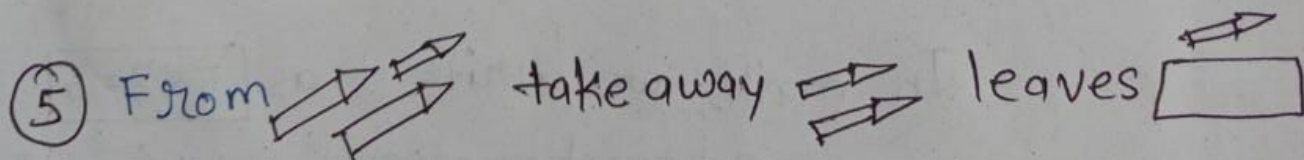 ⑤ From take away leaves